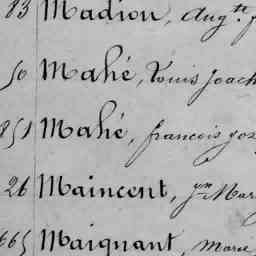 83 Madion, Aug.te
50 Mahé, Louis Joach
851 Mahé, francois Jos
26 Maincent, Jn Mar
665 Maignant, Marie